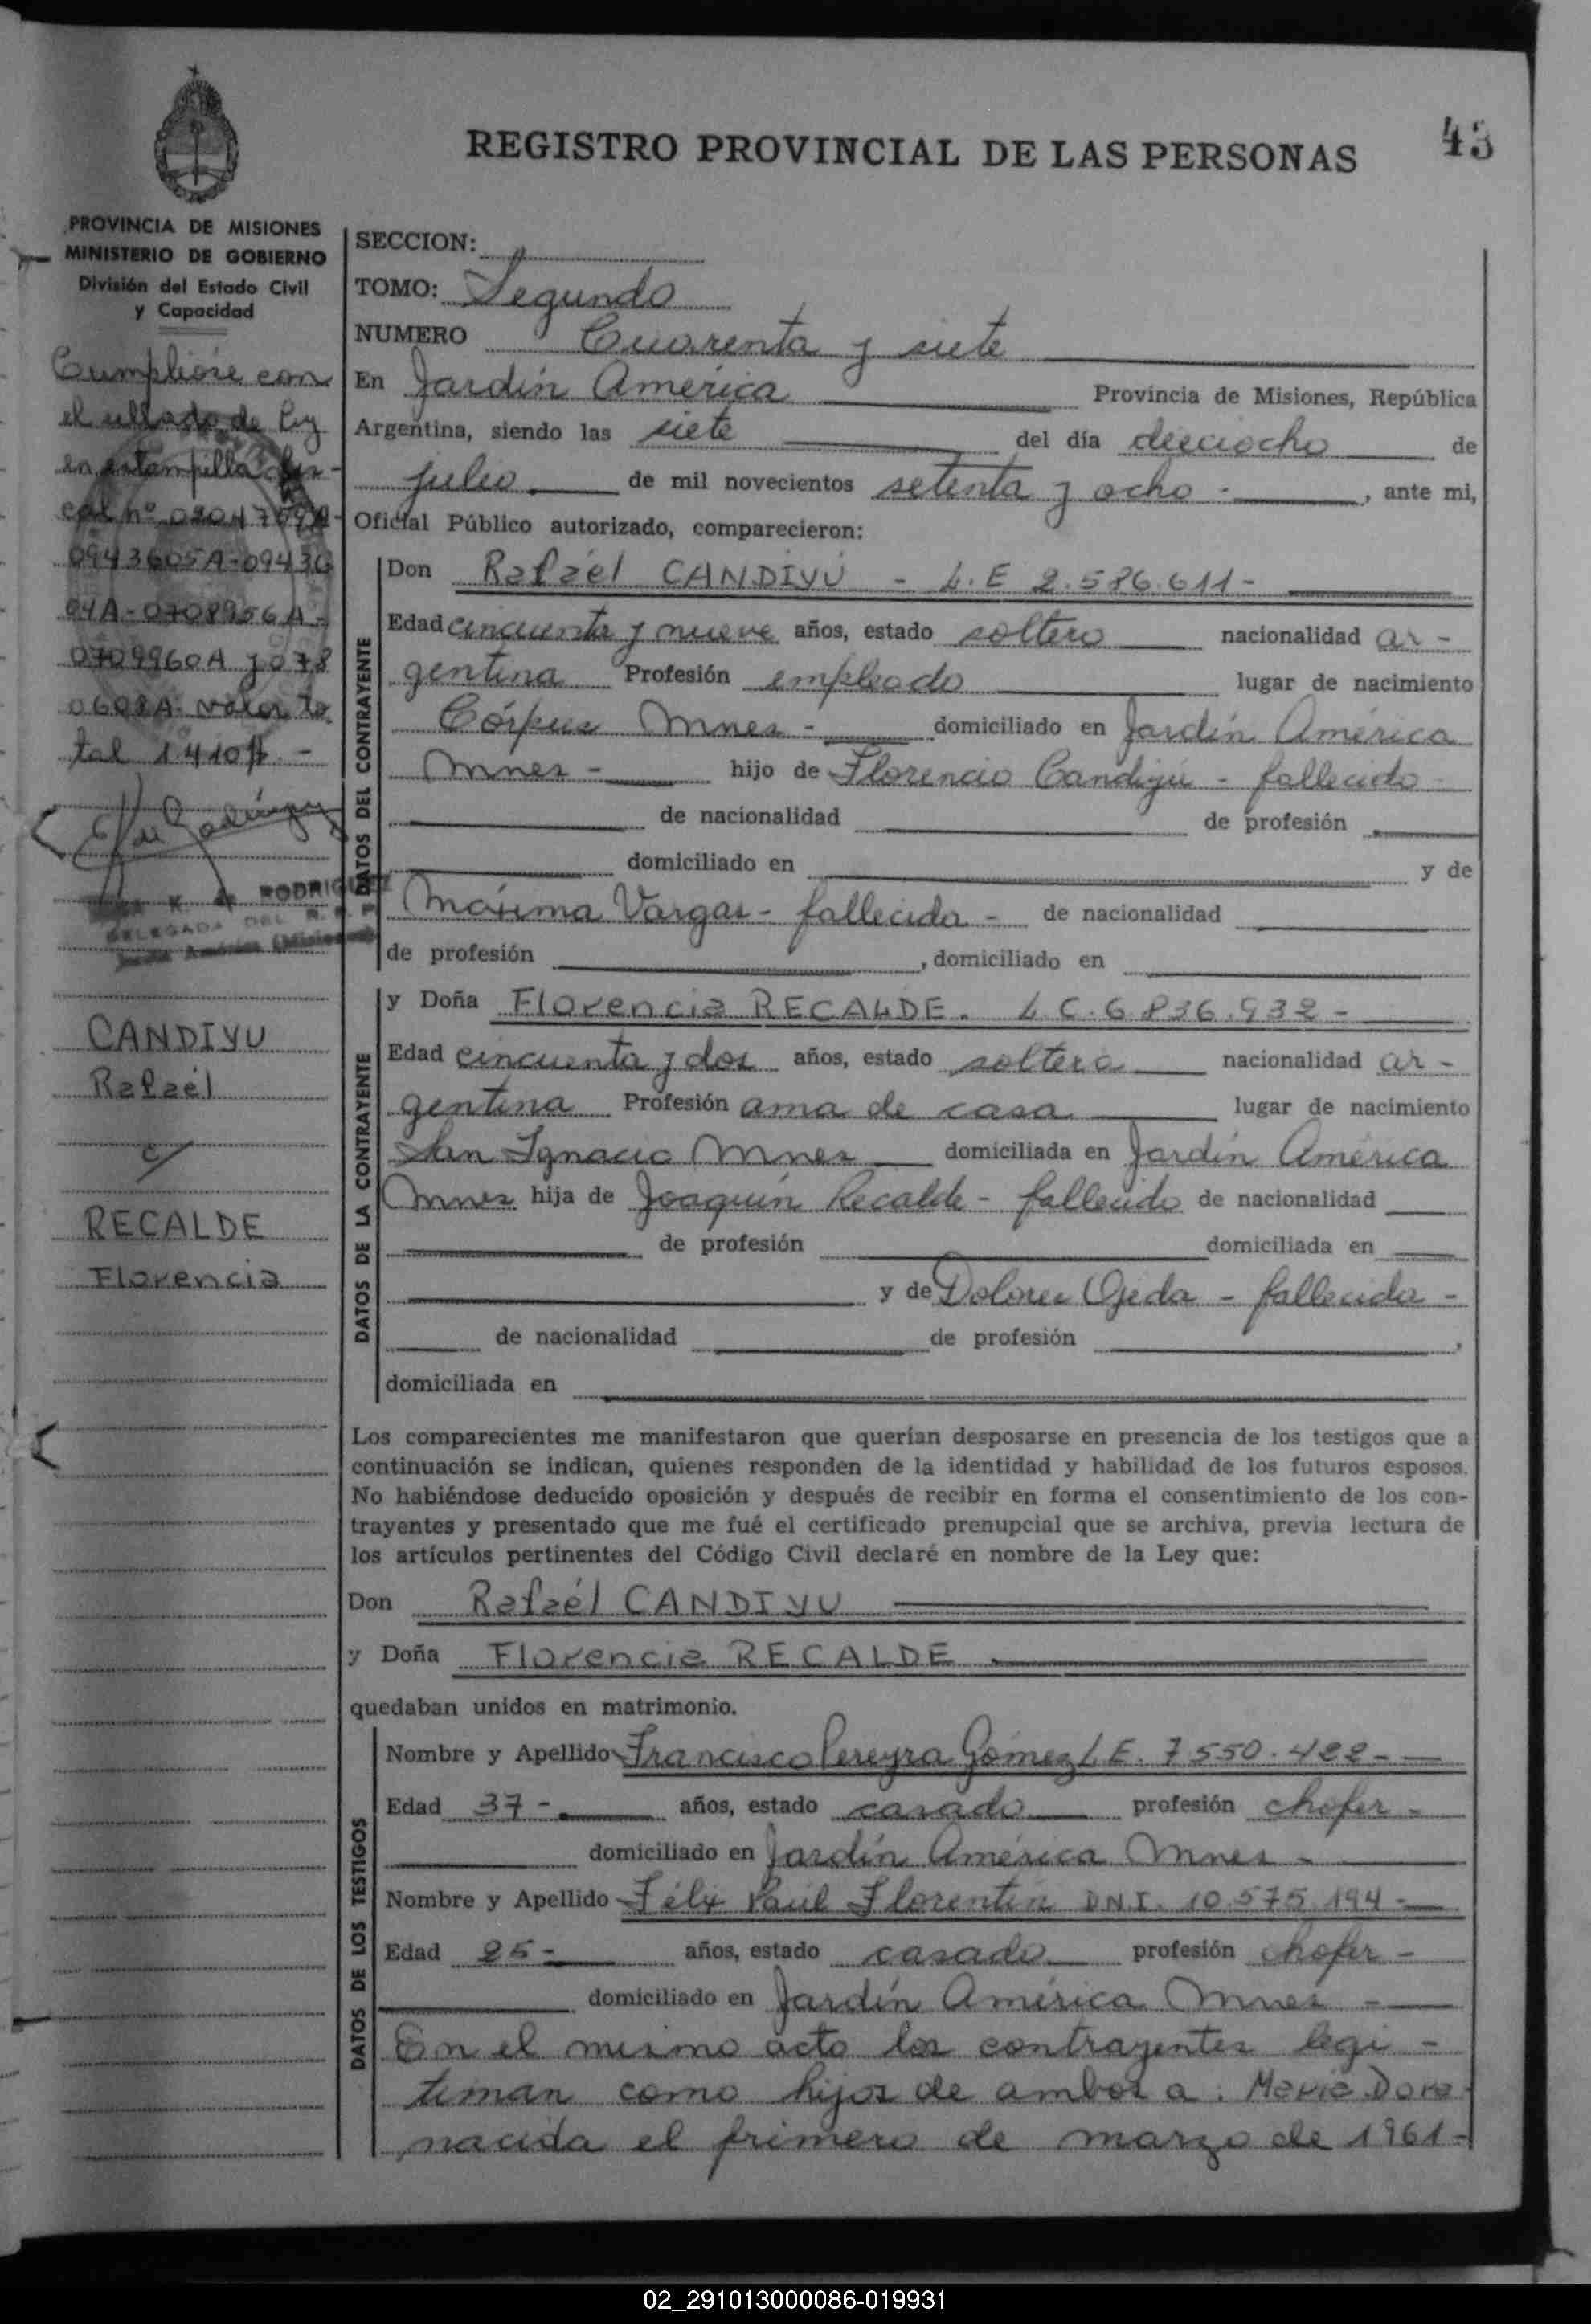 REGISTRO PROVINCIAL DE LAS PERSONAS
43
PROVINCIA DE MISIONES
MINISTERIO DE GOBIERNO
División del Estado Civil
y Capacidad
Cumplióse con
el sellado de ley
en estampilla fis-
cal nº
0943605A-09436
04A-0708956A-
0709960A y 078
0608A- valor to
tal 1.410 $.-
RODRIGUEZ
DELEGADA DEL R. P.
Jardín América (Misiones)
CANDIYU
Rafaél
c/
RECALDE
Florencia
SECCION:
TOMO: Segundo
NUMERO Cuarenta y siete
En Jardín América Provincia de Misiones, República
Argentina, siendo las siete del día dieciocho de
julio de mil novecientos setenta y ocho -, ante mi,
Oficial Público autorizado, comparecieron:
DATOS DEL CONTRAYENTE
Don Rafaél CANDIYÚ - L.E 2.586.611-
Edad cincuenta y nueve años, estado soltero nacionalidad ar-
gentina Profesión empleado lugar de nacimiento
Córpus Mnes - domiciliado en Jardín América
Mnes - hijo de Florencio Candiyú - fallecido -
de nacionalidad de profesión
domiciliado en y de
Máxima Vargas - fallecida - de nacionalidad
de profesión , domiciliado en
DATOS DE LA CONTRAYENTE
y Doña Florencia RECALDE. L.C. 6.836.932-
Edad cincuenta y dos años, estado soltera nacionalidad ar-
gentina Profesión ama de casa lugar de nacimiento
San Ignacio Mnes domiciliada en Jardín América
Mnes hija de Joaquín Recalde - fallecido de nacionalidad
de profesión domiciliada en
y de Dolores Ojeda - fallecida -
de nacionalidad de profesión ,
domiciliada en
Los comparecientes me manifestaron que querían desposarse en presencia de los testigos que a
continuación se indican, quienes responden de la identidad y habilidad de los futuros esposos.
No habiéndose deducido oposición y después de recibir en forma el consentimiento de los con-
trayentes y presentado que me fué el certificado prenupcial que se archiva, previa lectura de
los artículos pertinentes del Código Civil declaré en nombre de la Ley que:
Don Rafaél CANDIYU
y Doña Florencia RECALDE
quedaban unidos en matrimonio.
DATOS DE LOS TESTIGOS
Nombre y Apellido Francisco Pereyra Gómez L.E. 7.550.422-
Edad 37- años, estado casado profesión chofer -
domiciliado en Jardín América Mnes -
Nombre y Apellido Félix Raúl Florentín D.N.I. 10.575.194-
Edad 25- años, estado casado profesión chofer -
domiciliado en Jardín América Mnes -
En el mismo acto los contrayentes legi-
timan como hijos de ambos a: María Dora-
nacida el primero de marzo de 1961-
02_291013000086-019931